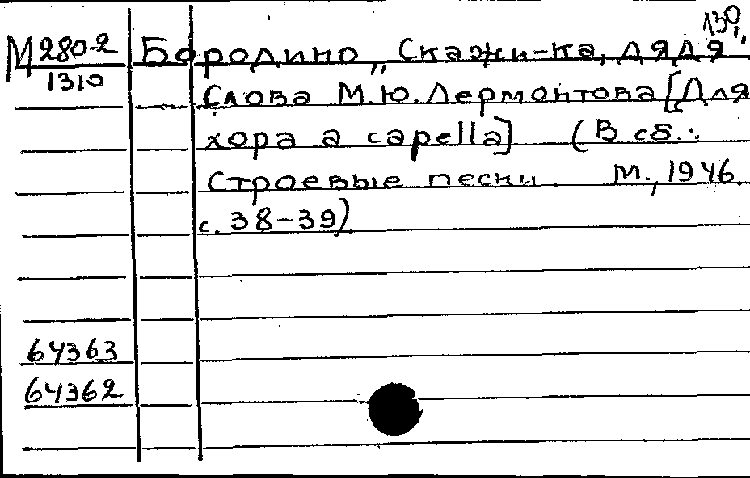 130
М 280-2 Бородино „Скажи-ка, дядя"
1310
Слова М.Ю.Лермонтова [Для
хора a capella] (В сб.:
Строевые песни. М., 1946.
с. 38-39)
64363
64362